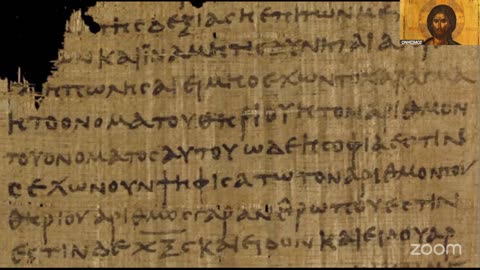 ΤΗCΔΕΞΙΑCΗΕΠΙΤΩΝΜΕ
ΩΝΚΑΙΪΝΑΜΗΤΙCΔΥΝΗΤΑΙΑ
ΗΠΩΛΗCΑΙΕΙΜΗΟΕΧΩΝΤΟΧΑΡΑΓΜΑ
ΗΤΟΟΝΟΜΑΤΟΥΘΗΡΙΟΥΗΤΟΝΑΡΙΘΜΟΝ
ΤΟΥΟΝΟΜΑΤΟCΑΥΤΟΥΩΔΕΗCΟΦΙΑΕCΤΙΝ
ΕΧΩΝΟΥΝΨΗΦΙCΑΤΩΤΟΝΑΡΙΘΜΟΝΤΟΥ
ΘΗΡΙΟΥΑΡΙΘΜΟCΓΑΡΑΝΘΡΩΠΟΥΕCΤΙΝ
ΕCΤΙΝΔΕΧΞϚΚΑΙΕΙΔΟΝΚΑΙΕΙΔΟΥΑΡ
zoom